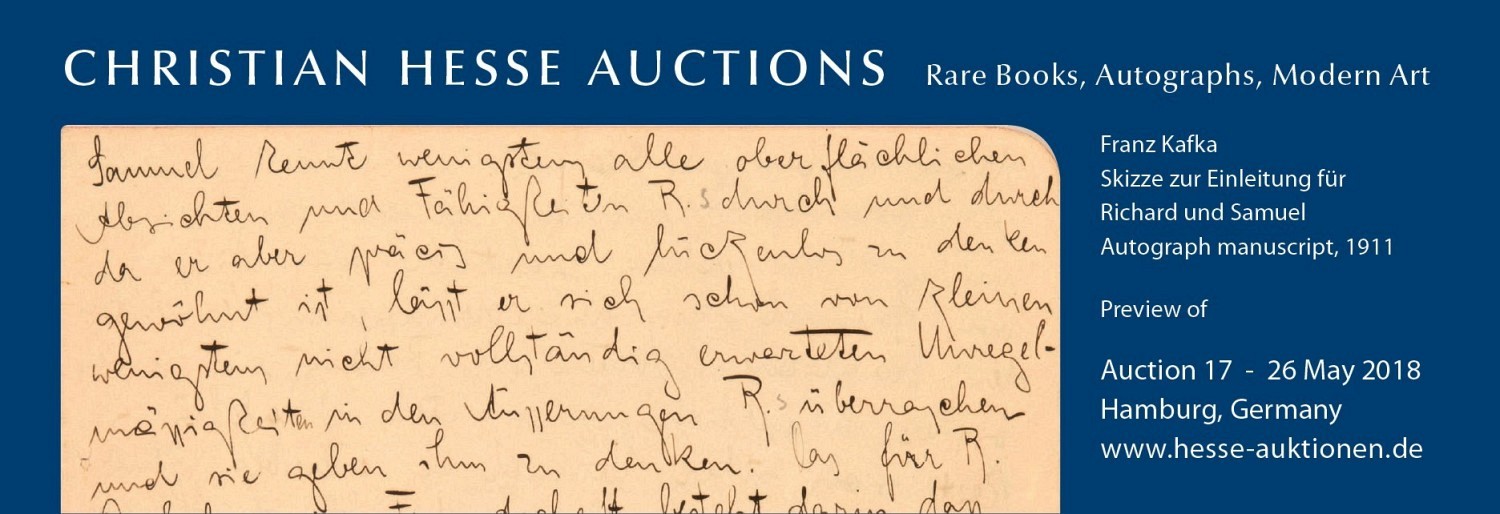 CHRISTIAN HESSE AUCTIONS Rare Books, Autographs, Modern Art
Samuel kennt wenigstens alle oberflächlichen
Absichten und Fähigkeiten R.s durch und durch
da er aber präcis und lückenlos zu denken
gewöhnt ist, lässt er sich schon von kleinen
wenigstens nicht vollständig erwarteten Unregel-
mässigkeiten in den Äusserungen R.s überraschen
und sie geben ihm zu denken. Das für R.
besteht darin dan
Franz Kafka
Skizze zur Einleitung für
Richard und Samuel
Autograph manuscript, 1911
Preview of
Auction 17 - 26 May 2018
Hamburg, Germany
www.hesse-auktionen.de